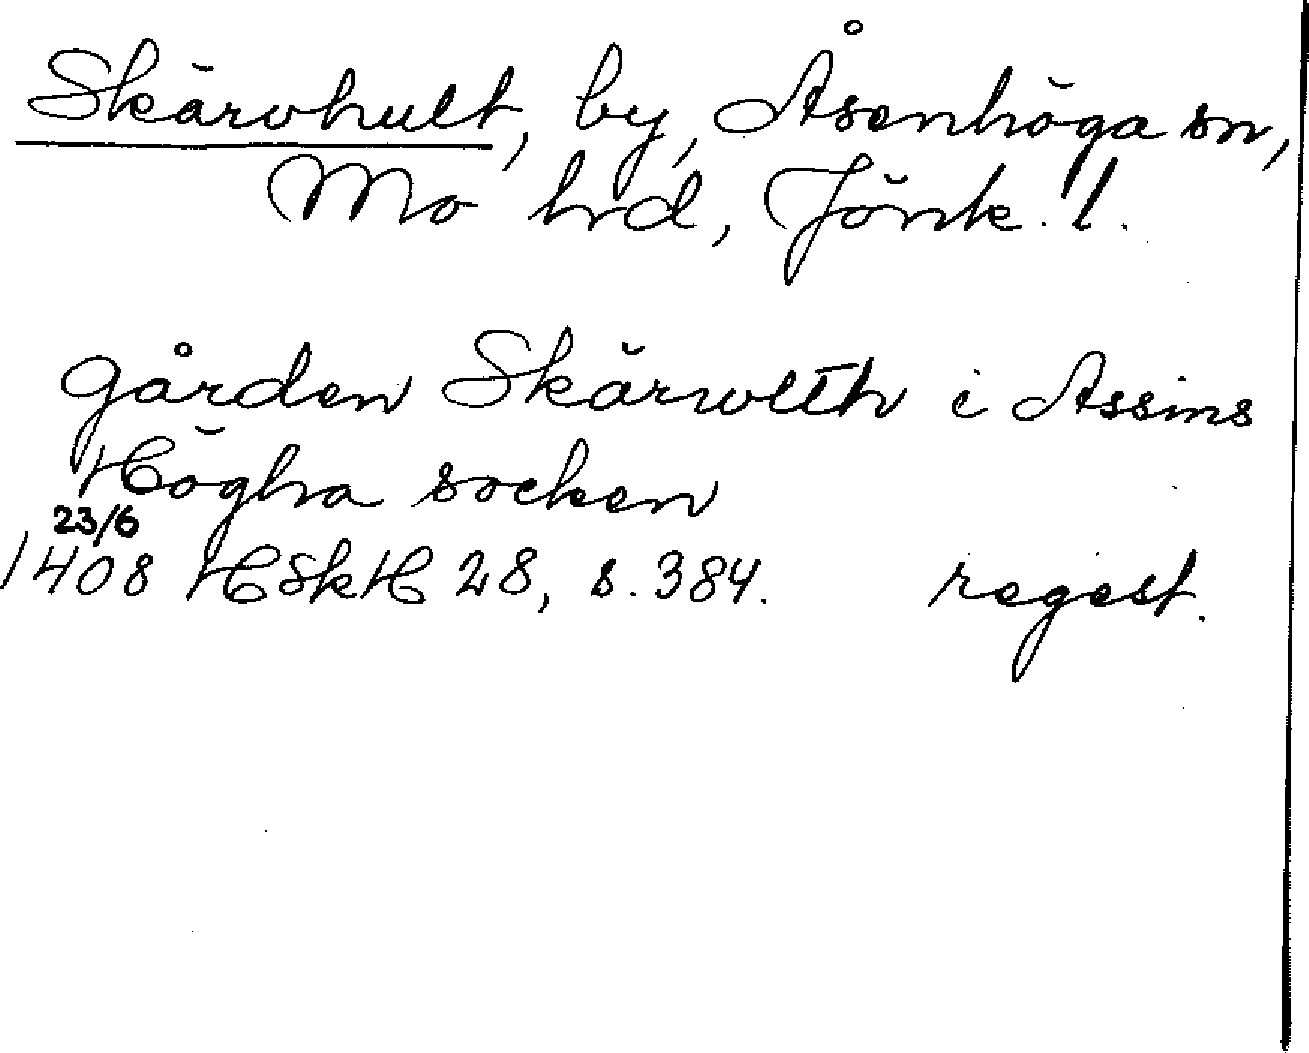 Skärvhult, by, Åsenhöga sn,
Mo hrd, Jönk. l.
gården Skärwlth i Assins
Högha socken
23/6
1408 HSkH 28, s. 384. regest.